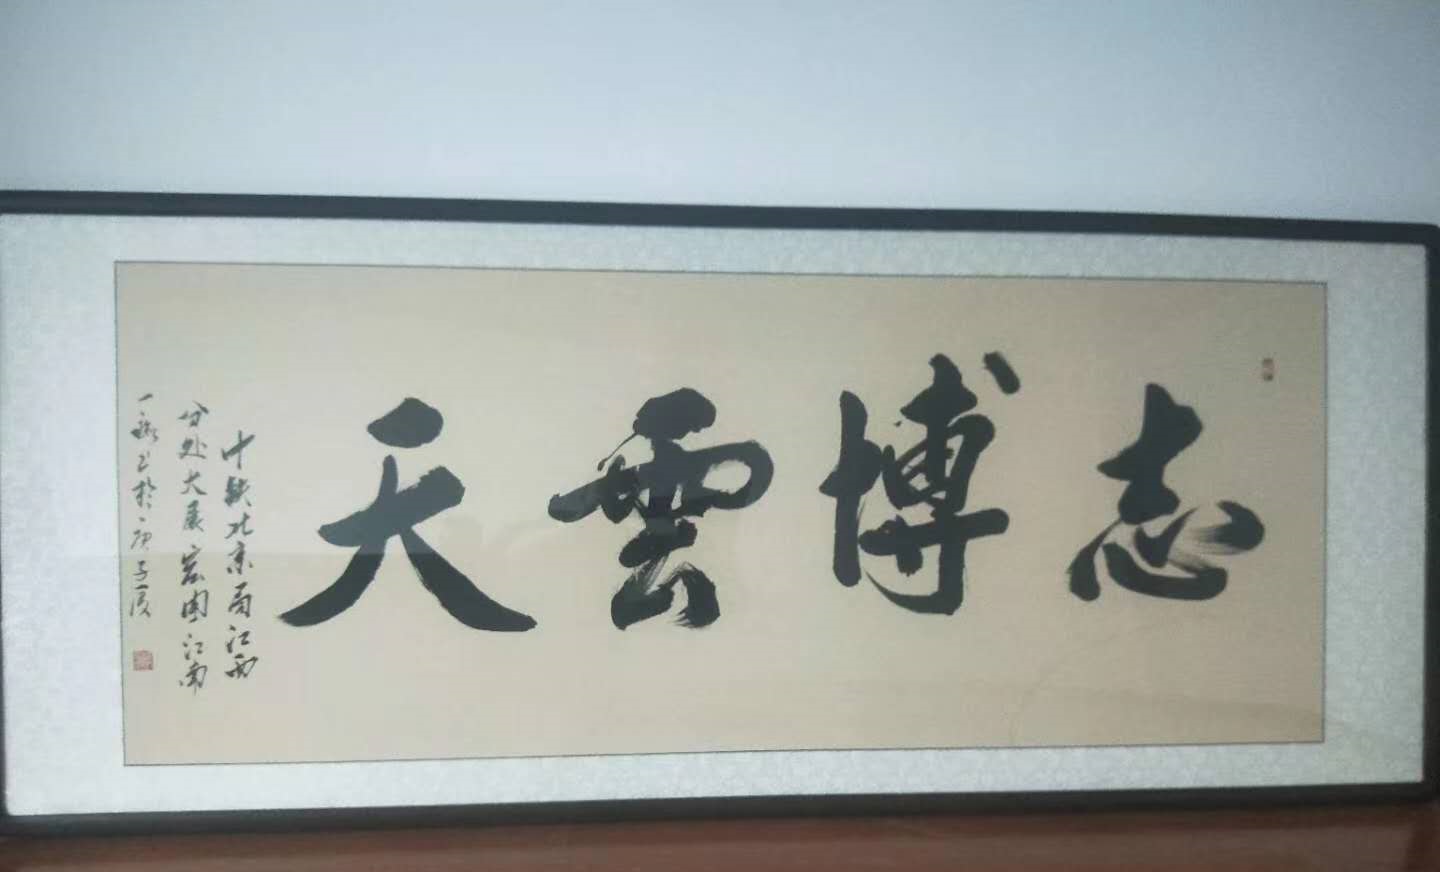 志博雲天
中铁北京局江西
分处大展宏图江南
一泓书于庚子夏